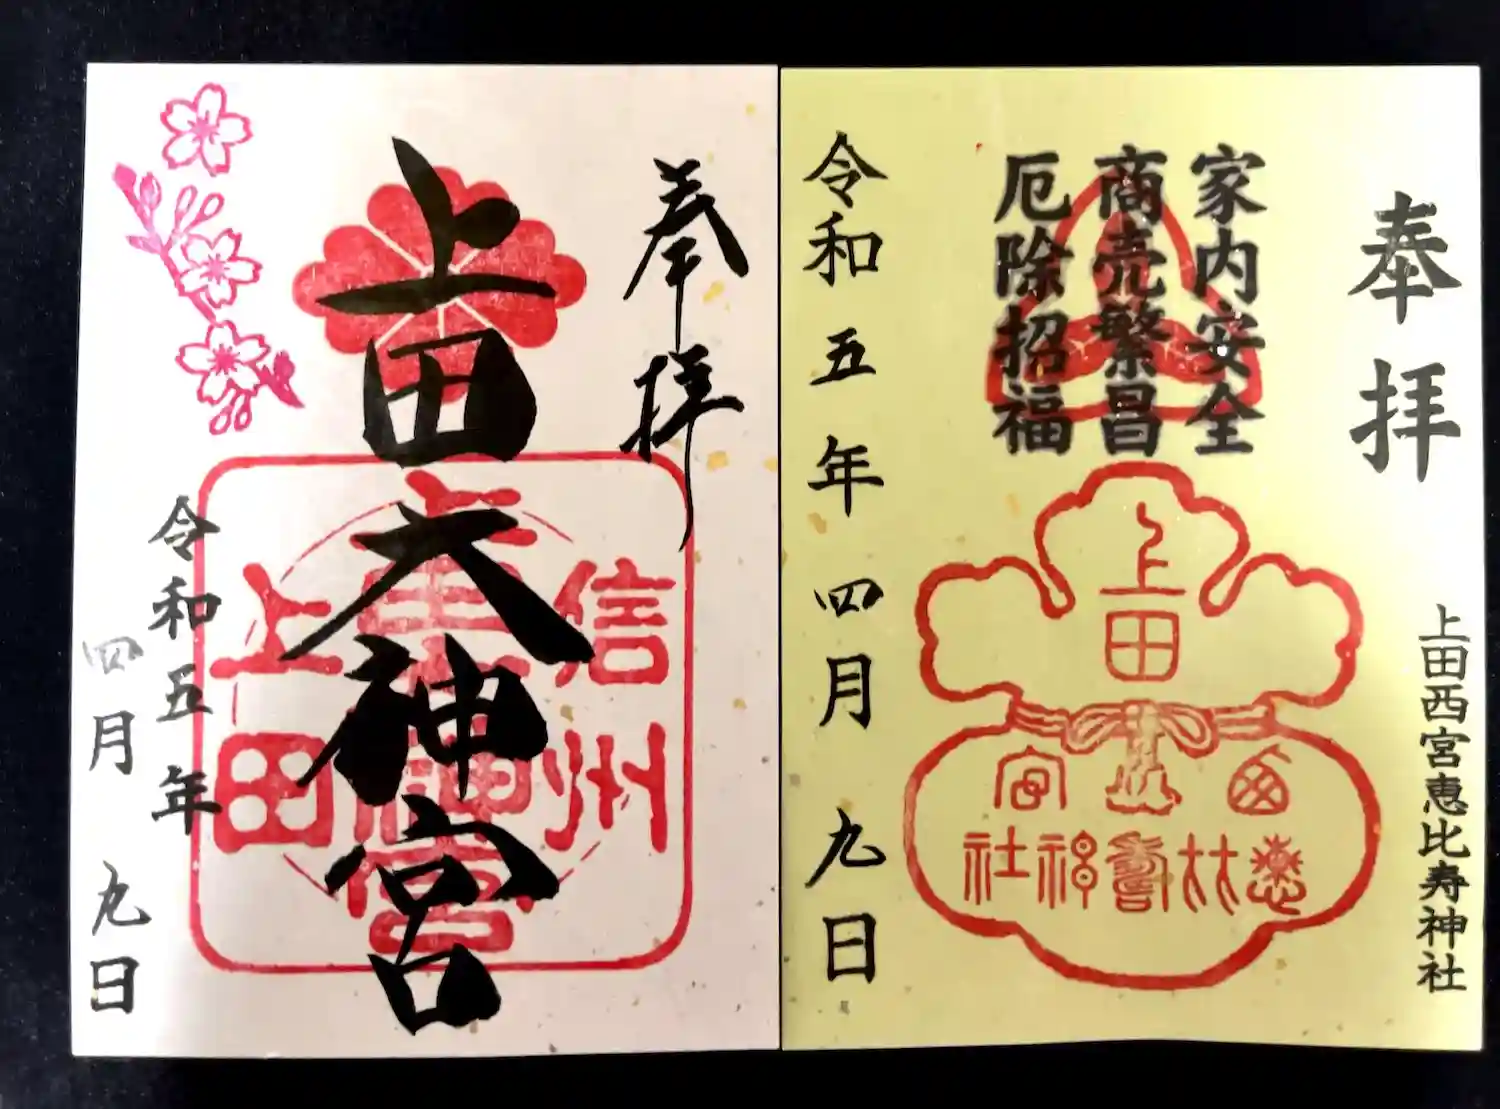 奉拝
上田大神宮
信州
大神宮
上田
令和五年
四月九日
奉拝
上田西宮恵比寿神社
家内安全
商売繁昌
厄除招福
上田
西宮
恵比寿神社
令和五年四月九日